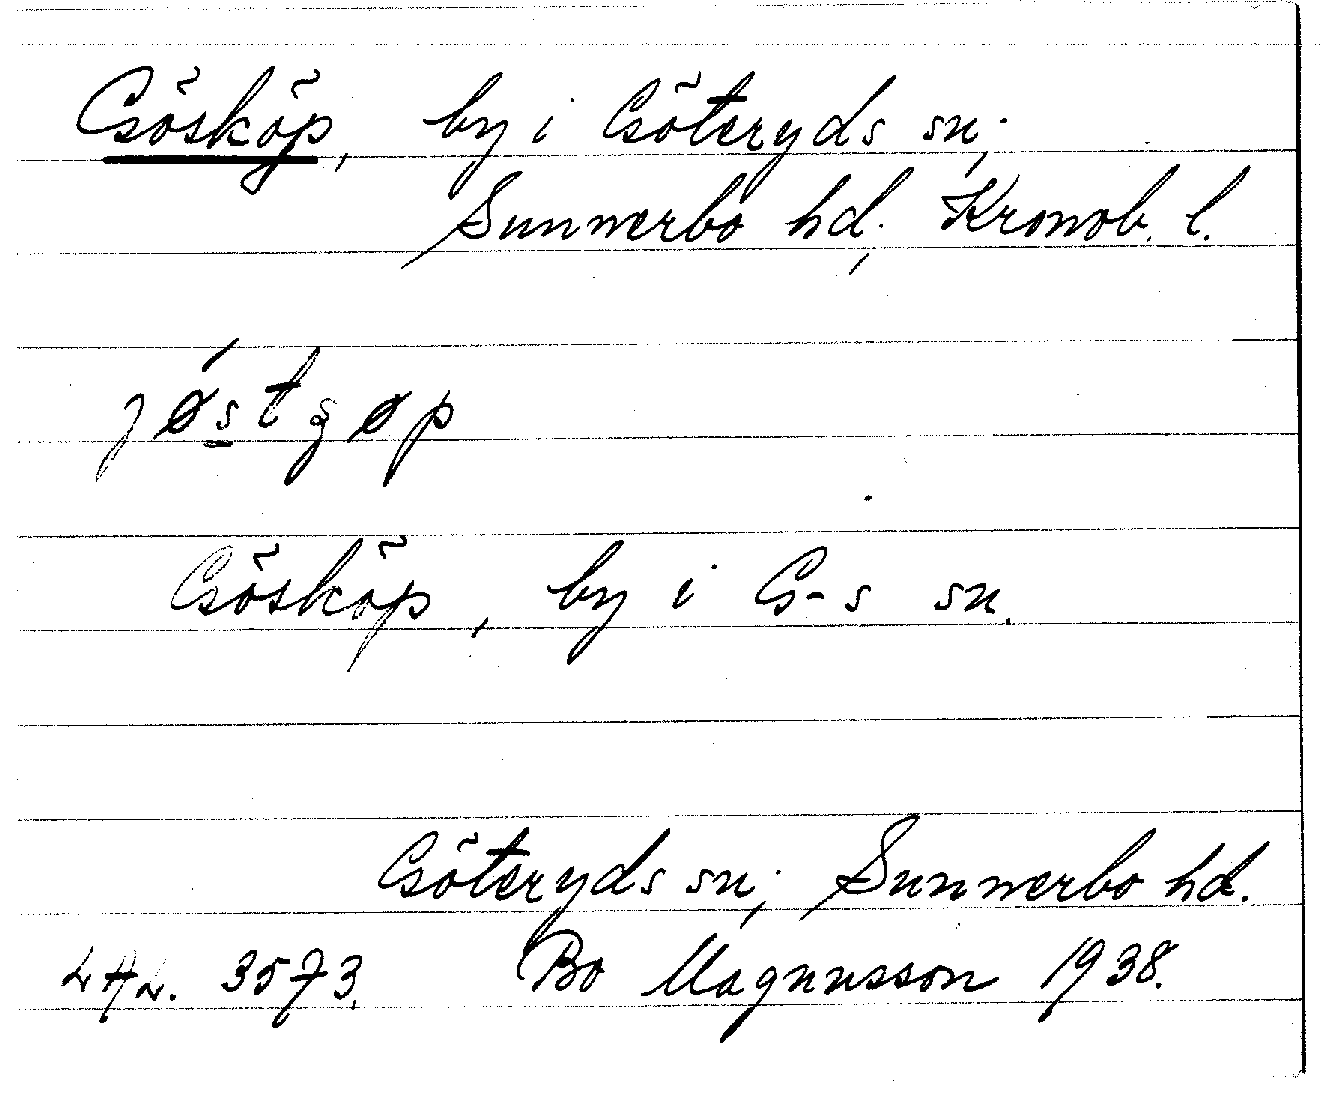 Gösköp, by i Göteryds sn;
Sunnerbo hd; Kronob. l.
Gösköp, by i G-s sn.
Göteryds sn; Sunnerbo hd.
LAL. 3573. Bo Magnusson 1938.